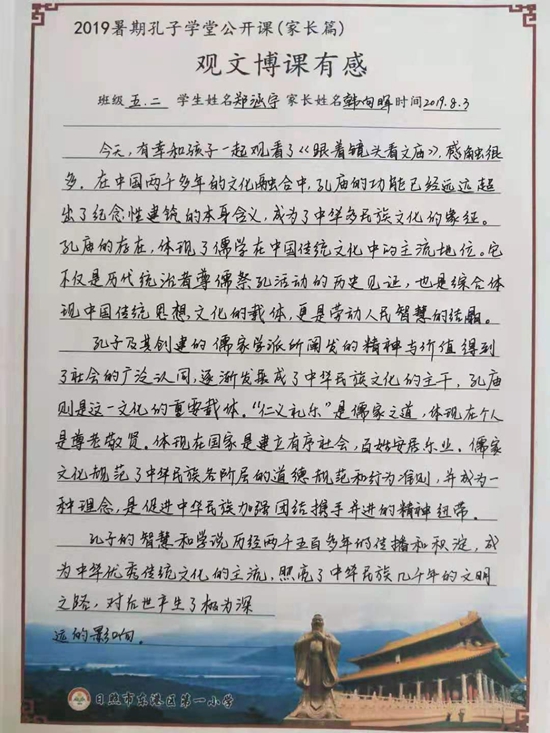 2019暑期孔子学堂公开课(家长篇)
观文博课有感
班级 五.二 学生姓名 郑涵宇 家长姓名 韩旬晖 时间 2019.8.3
今天,有幸和孩子一起观看了《跟着镜头看文庙》,感触很
多。在中国两千多年的文化融合中,孔庙的功能已经远远超
出了纪念性建筑的本身含义,成为了中华多民族文化的象征。
孔庙的存在,体现了儒学在中国传统文化中的主流地位。它
不仅是历代统治者尊儒祭孔活动的历史见证,也是综合体
现中国传统思想、文化的载体,更是劳动人民智慧的结晶。
孔子及其创建的儒家学派所阐发的精神与价值得到
了社会的广泛认同,逐渐发展成了中华民族文化的主干,孔庙
则是这一文化的重要载体。“仁义礼乐”是儒家之道,体现在个人
是尊老敬贤。体现在国家是建立有序社会,百姓安居乐业。儒家
文化规范了中华民族各阶层的道德规范和行为准则,并成为一
种理念,是促进中华民族加强团结携手并进的精神纽带。
孔子的智慧和学说历经两千五百多年的传播和积淀,成
为中华优秀传统文化的主流,照亮了中华民族几千年的文明
之路,对后世产生了极为深
远的影响。
日照市东港区第一小学